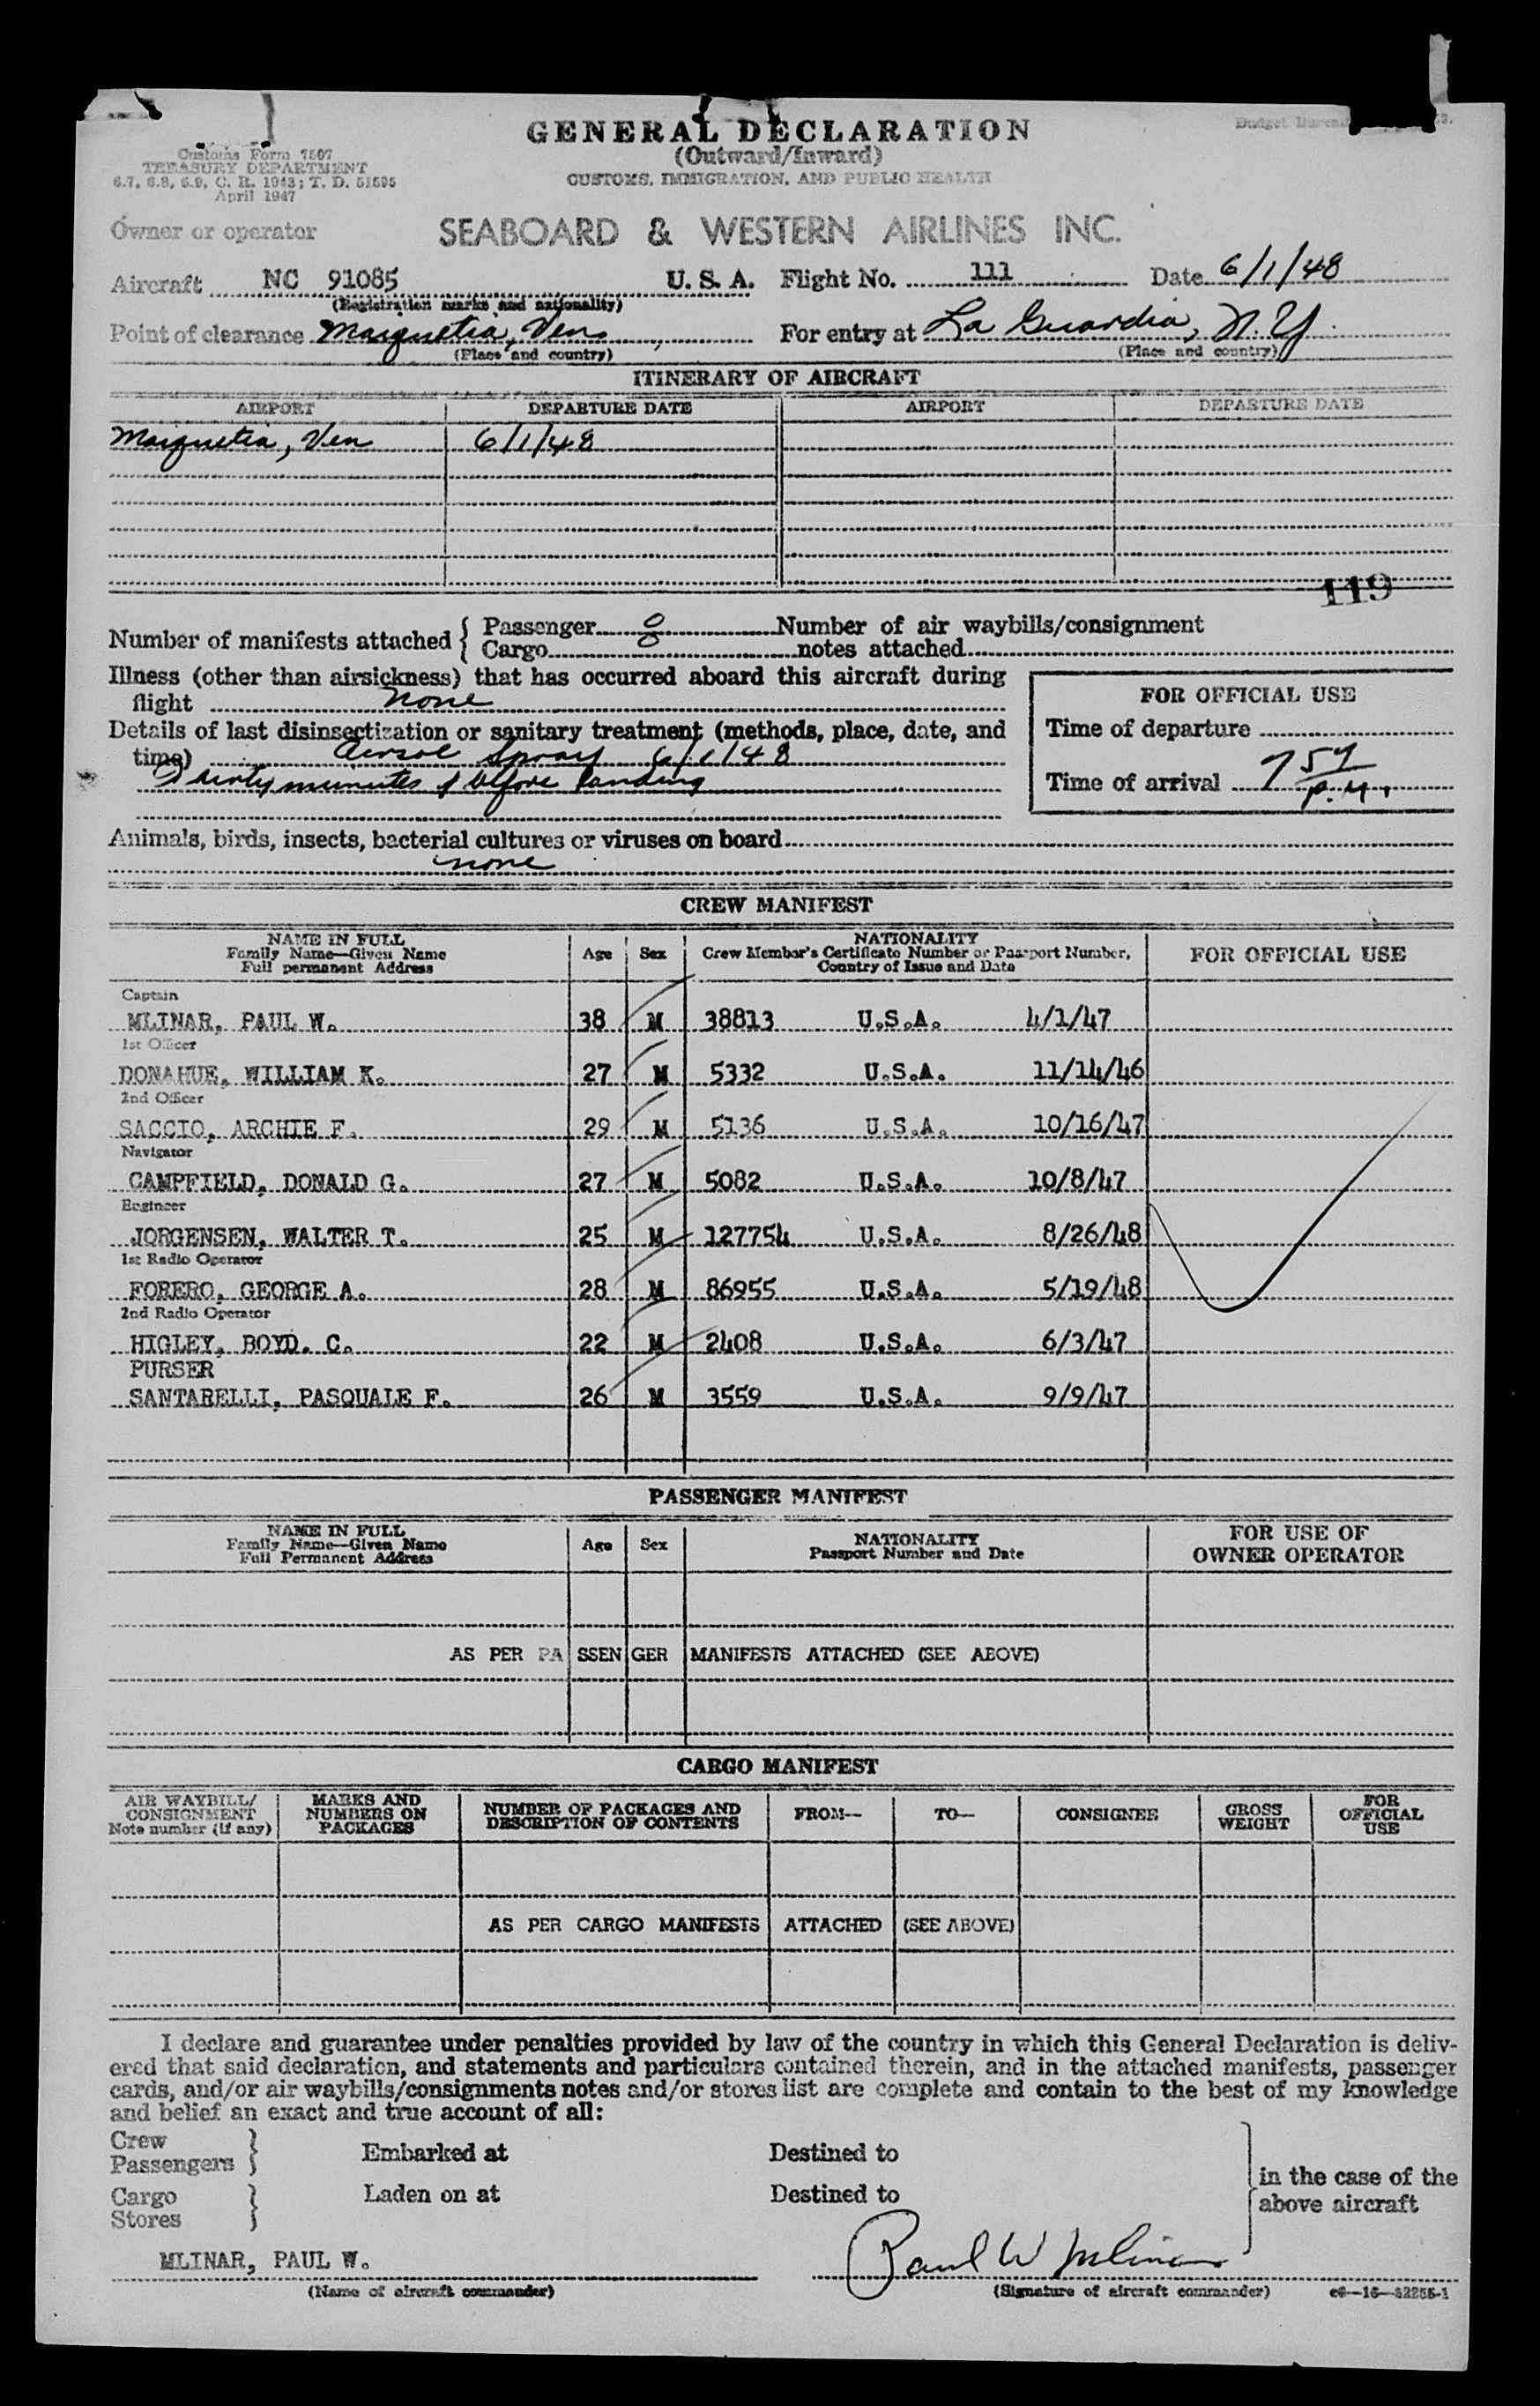 GENERAL DECLARATION
(Outward/Inward)
CUSTOMS, IMMIGRATION, AND PUBLIC HEALTH
Budget Bureau
Customs Form 7507
TREASURY DEPARTMENT
6.7, 6.8, 6.9, C. R. 1943; T. D. 51595
April 1947
Owner or operator SEABOARD & WESTERN AIRLINES INC.
Aircraft NC 91085 U. S. A. Flight No. 111 Date 6/1/48
(Registration marks and nationality)
Point of clearance Maiquetia, Ven For entry at La Guardia, N.Y.
(Place and country) (Place and country)
ITINERARY OF AIRCRAFT
AIRPORT DEPARTURE DATE AIRPORT DEPARTURE DATE
Maiquetia, Ven 6/1/48
119
Number of manifests attached { Passenger 0 Number of air waybills/consignment
Cargo 0 notes attached
Illness (other than airsickness) that has occurred aboard this aircraft during
flight none
Details of last disinsectization or sanitary treatment (methods, place, date, and
time) Aersol Spray 6/1/48
Thirty minutes before landing
FOR OFFICIAL USE
Time of departure
Time of arrival 7 57 P.M.
Animals, birds, insects, bacterial cultures or viruses on board
none
CREW MANIFEST
NAME IN FULL Age Sex NATIONALITY FOR OFFICIAL USE
Family Name—Given Name Crew Member's Certificate Number or Passport Number,
Full permanent Address Country of Issue and Date
Captain
MLINAR, PAUL W. 38 M 38813 U.S.A. 4/1/47
1st Officer
DONAHUE, WILLIAM K. 27 M 5332 U.S.A. 11/14/46
2nd Officer
SACCIO, ARCHIE F. 29 M 5136 U.S.A. 10/16/47
Navigator
CAMPFIELD, DONALD G. 27 M 5082 U.S.A. 10/8/47
Engineer
JORGENSEN, WALTER T. 25 M 127754 U.S.A. 8/26/48
1st Radio Operator
FORERO, GEORGE A. 28 M 86955 U.S.A. 5/19/48
2nd Radio Operator
HIGLEY, BOYD. C. 22 M 2408 U.S.A. 6/3/47
PURSER
SANTARELLI, PASQUALE F. 26 M 3559 U.S.A. 9/9/47
PASSENGER MANIFEST
NAME IN FULL Age Sex NATIONALITY FOR USE OF
Family Name—Given Name Passport Number and Date OWNER OPERATOR
Full Permanent Address
AS PER PASSENGER MANIFESTS ATTACHED (SEE ABOVE)
CARGO MANIFEST
AIR WAYBILL/ MARKS AND NUMBER OF PACKAGES AND FROM— TO— CONSIGNEE GROSS FOR
CONSIGNMENT NUMBERS ON DESCRIPTION OF CONTENTS WEIGHT OFFICIAL
Note number (if any) PACKAGES USE
AS PER CARGO MANIFESTS ATTACHED (SEE ABOVE)
I declare and guarantee under penalties provided by law of the country in which this General Declaration is deliv-
ered that said declaration, and statements and particulars contained therein, and in the attached manifests, passenger
cards, and/or air waybills/consignments notes and/or stores list are complete and contain to the best of my knowledge
and belief an exact and true account of all:
Crew
Passengers } Embarked at Destined to
Cargo
Stores } Laden on at Destined to
in the case of the
above aircraft
MLINAR, PAUL W. Paul W Mlinar
(Name of aircraft commander) (Signature of aircraft commander) c6—16—52255-1